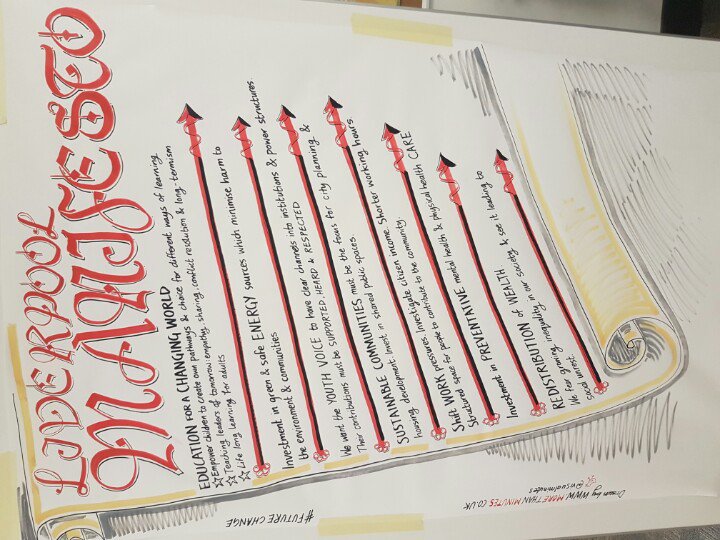 LIVERPOOL
MANIFESTO
EDUCATION FOR A CHANGING WORLD
☆ Empower children to create own pathways & choice for different ways of learning
☆ Teaching leaders of tomorrow: empathy, sharing, conflict resolution & long-termism
☆ Life long learning for adults
Investment in green & safe ENERGY sources which minimise harm to
the environment & communities
We want the YOUTH VOICE to have clear channels into institutions & power structures
Their contributions must be SUPPORTED, HEARD & RESPECTED
SUSTAINABLE COMMUNITIES must be the focus for city planning &
housing development. Invest in shared public spaces
Shift WORK pressures. Investigate citizen income. Shorter working hours.
Structured space for people to contribute to the community
Investment in PREVENTATIVE mental health & physical health CARE
REDISTRIBUTION of WEALTH
We fear growing inequality in our society & see it leading to
social unrest.
#FUTURECHANGE
Drawn by WWW.MORETHANMINUTES.CO.UK
@visualminutes